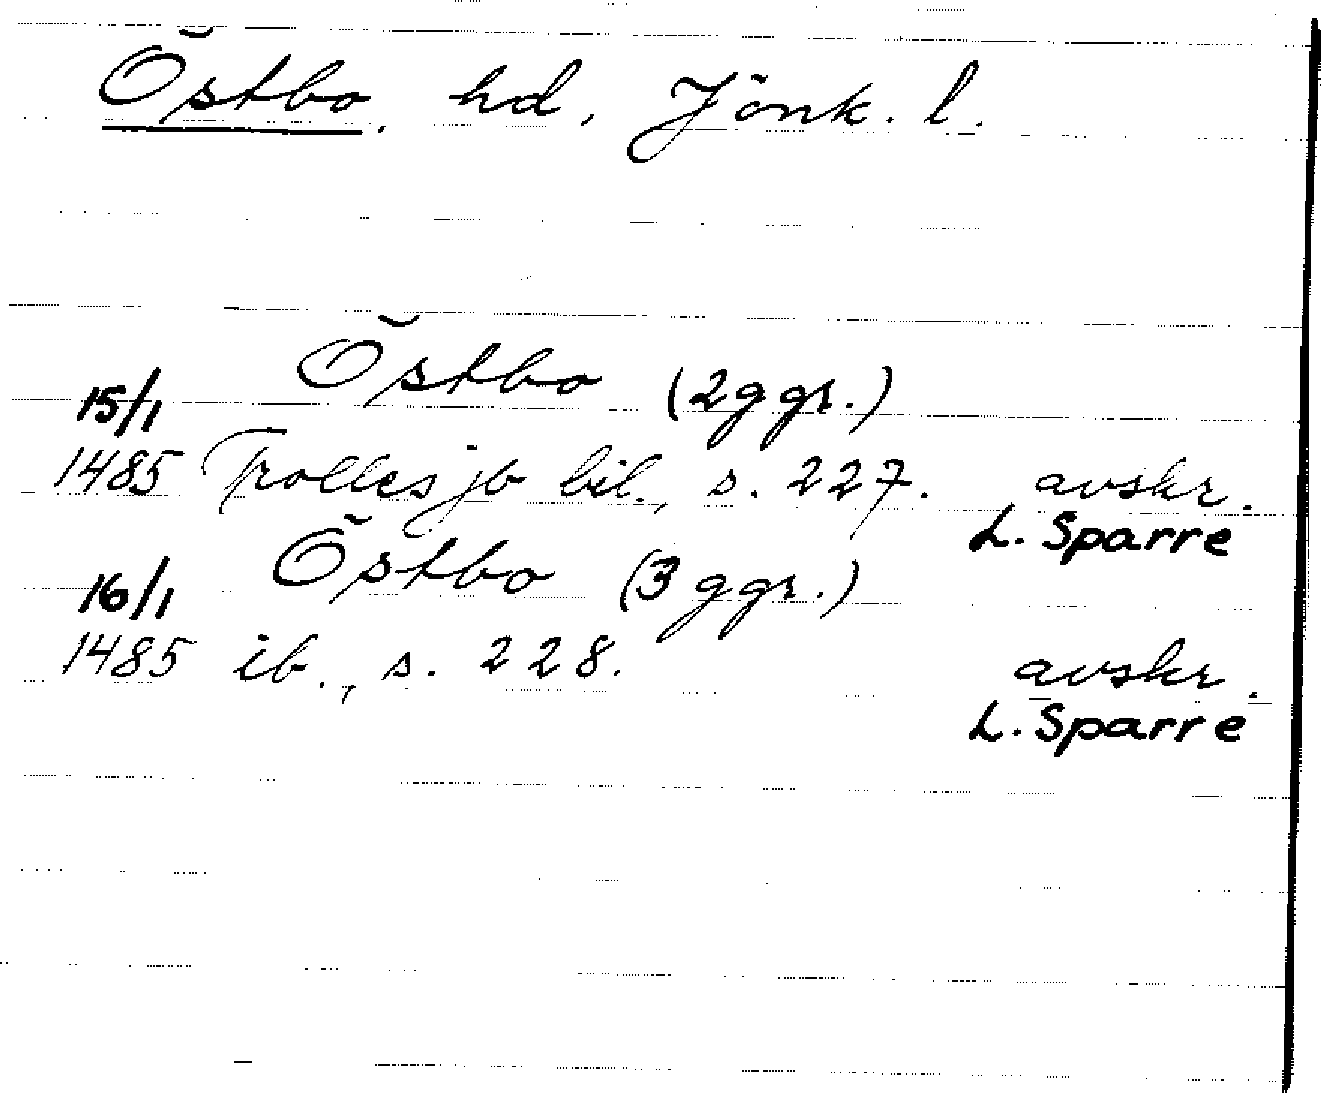 Östbo, hd, Jönk. l.
Östbo (2 ggr.)
15/1
1485 Trolles jb bil., s. 227. avskr.
L. Sparre
Östbo (3 ggr.)
16/1
1485 ib., s. 228. avskr.
L. Sparre